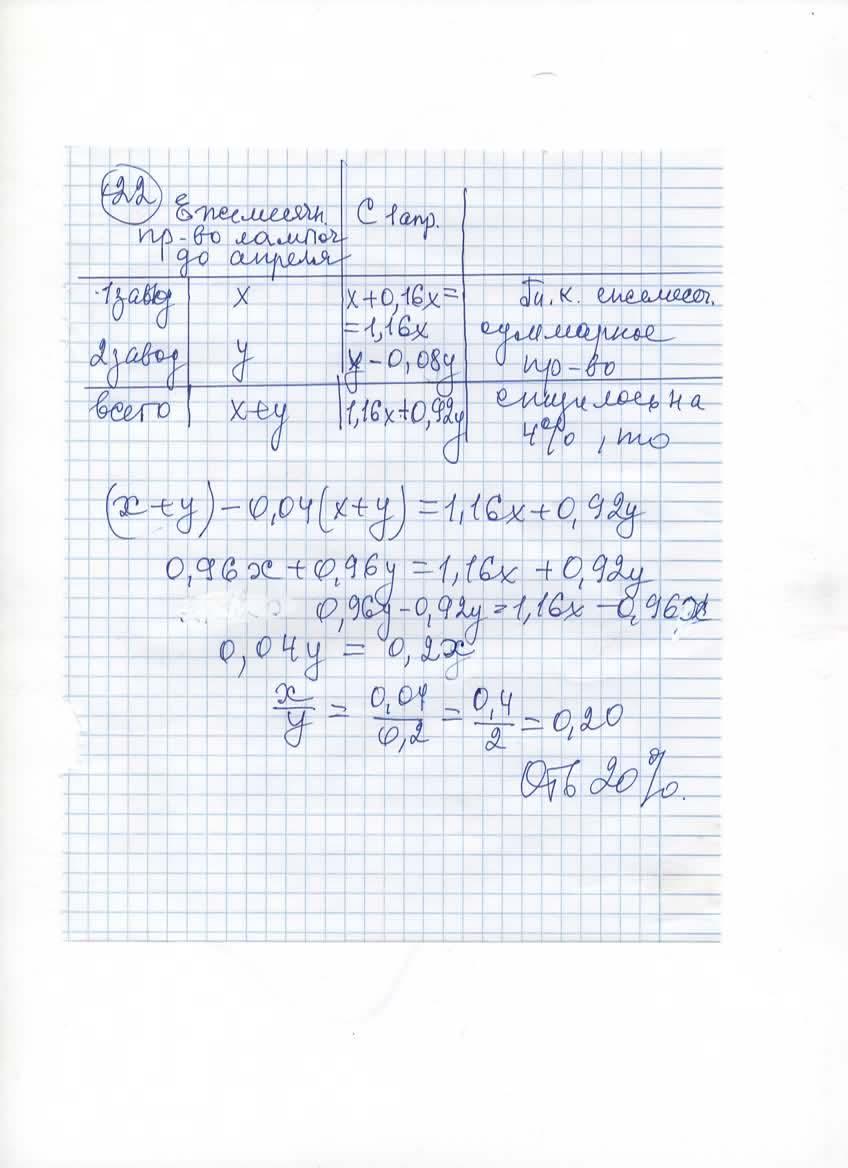 22
Ежемесячн. С 1 апр.
пр-во лампоч
до апреля
1 завод x x+0,16x= Т.к. ежемесяч.
=1,16x суммарное
2 завод y y-0,08y пр-во
всего x+y 1,16x+0,92y снизилось на
4%, то
(x+y)-0,04(x+y)=1,16x+0,92y
0,96x+0,96y=1,16x+0,92y
0,96y-0,92y=1,16x-0,96x
0,04y = 0,2x
x/y = 0,04/0,2 = 0,4/2 = 0,20
Отв 20%.